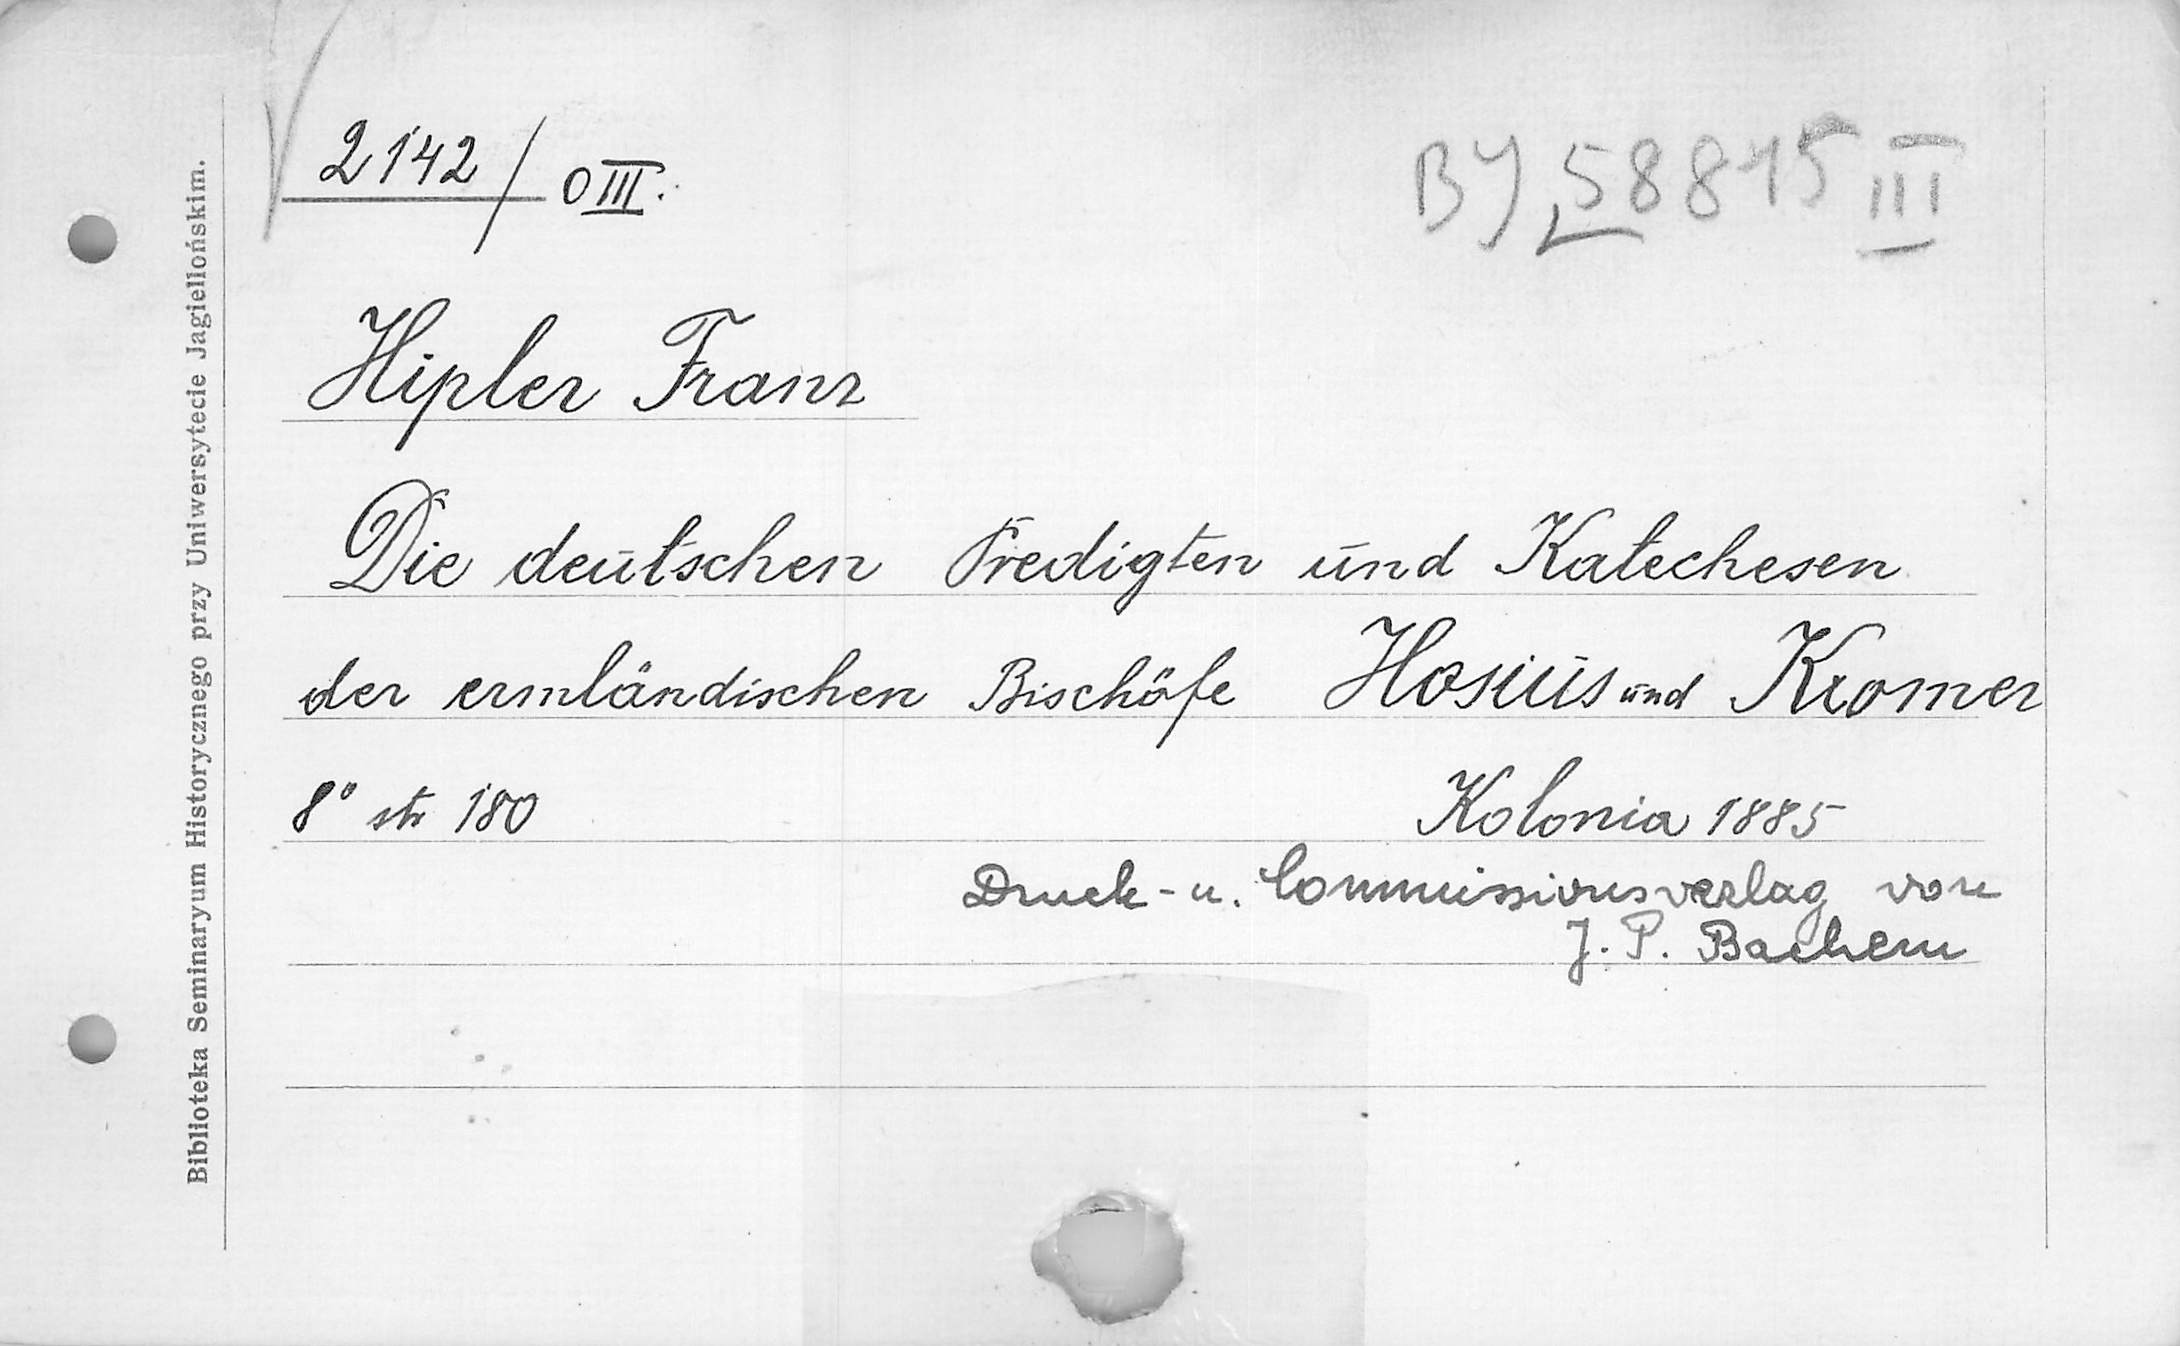 2142/OIII.
BJ 58815 III
Hipler Franz
Die deutschen Predigten und Katechesen
der ermländischen Bischöfe Hosius und Kromer
8° str 180 Kolonia 1885
Druck- u. Commissionsverlag von
J. P. Bachem
Biblioteka Seminaryum Historycznego przy Uniwersytecie Jagiellońskim.